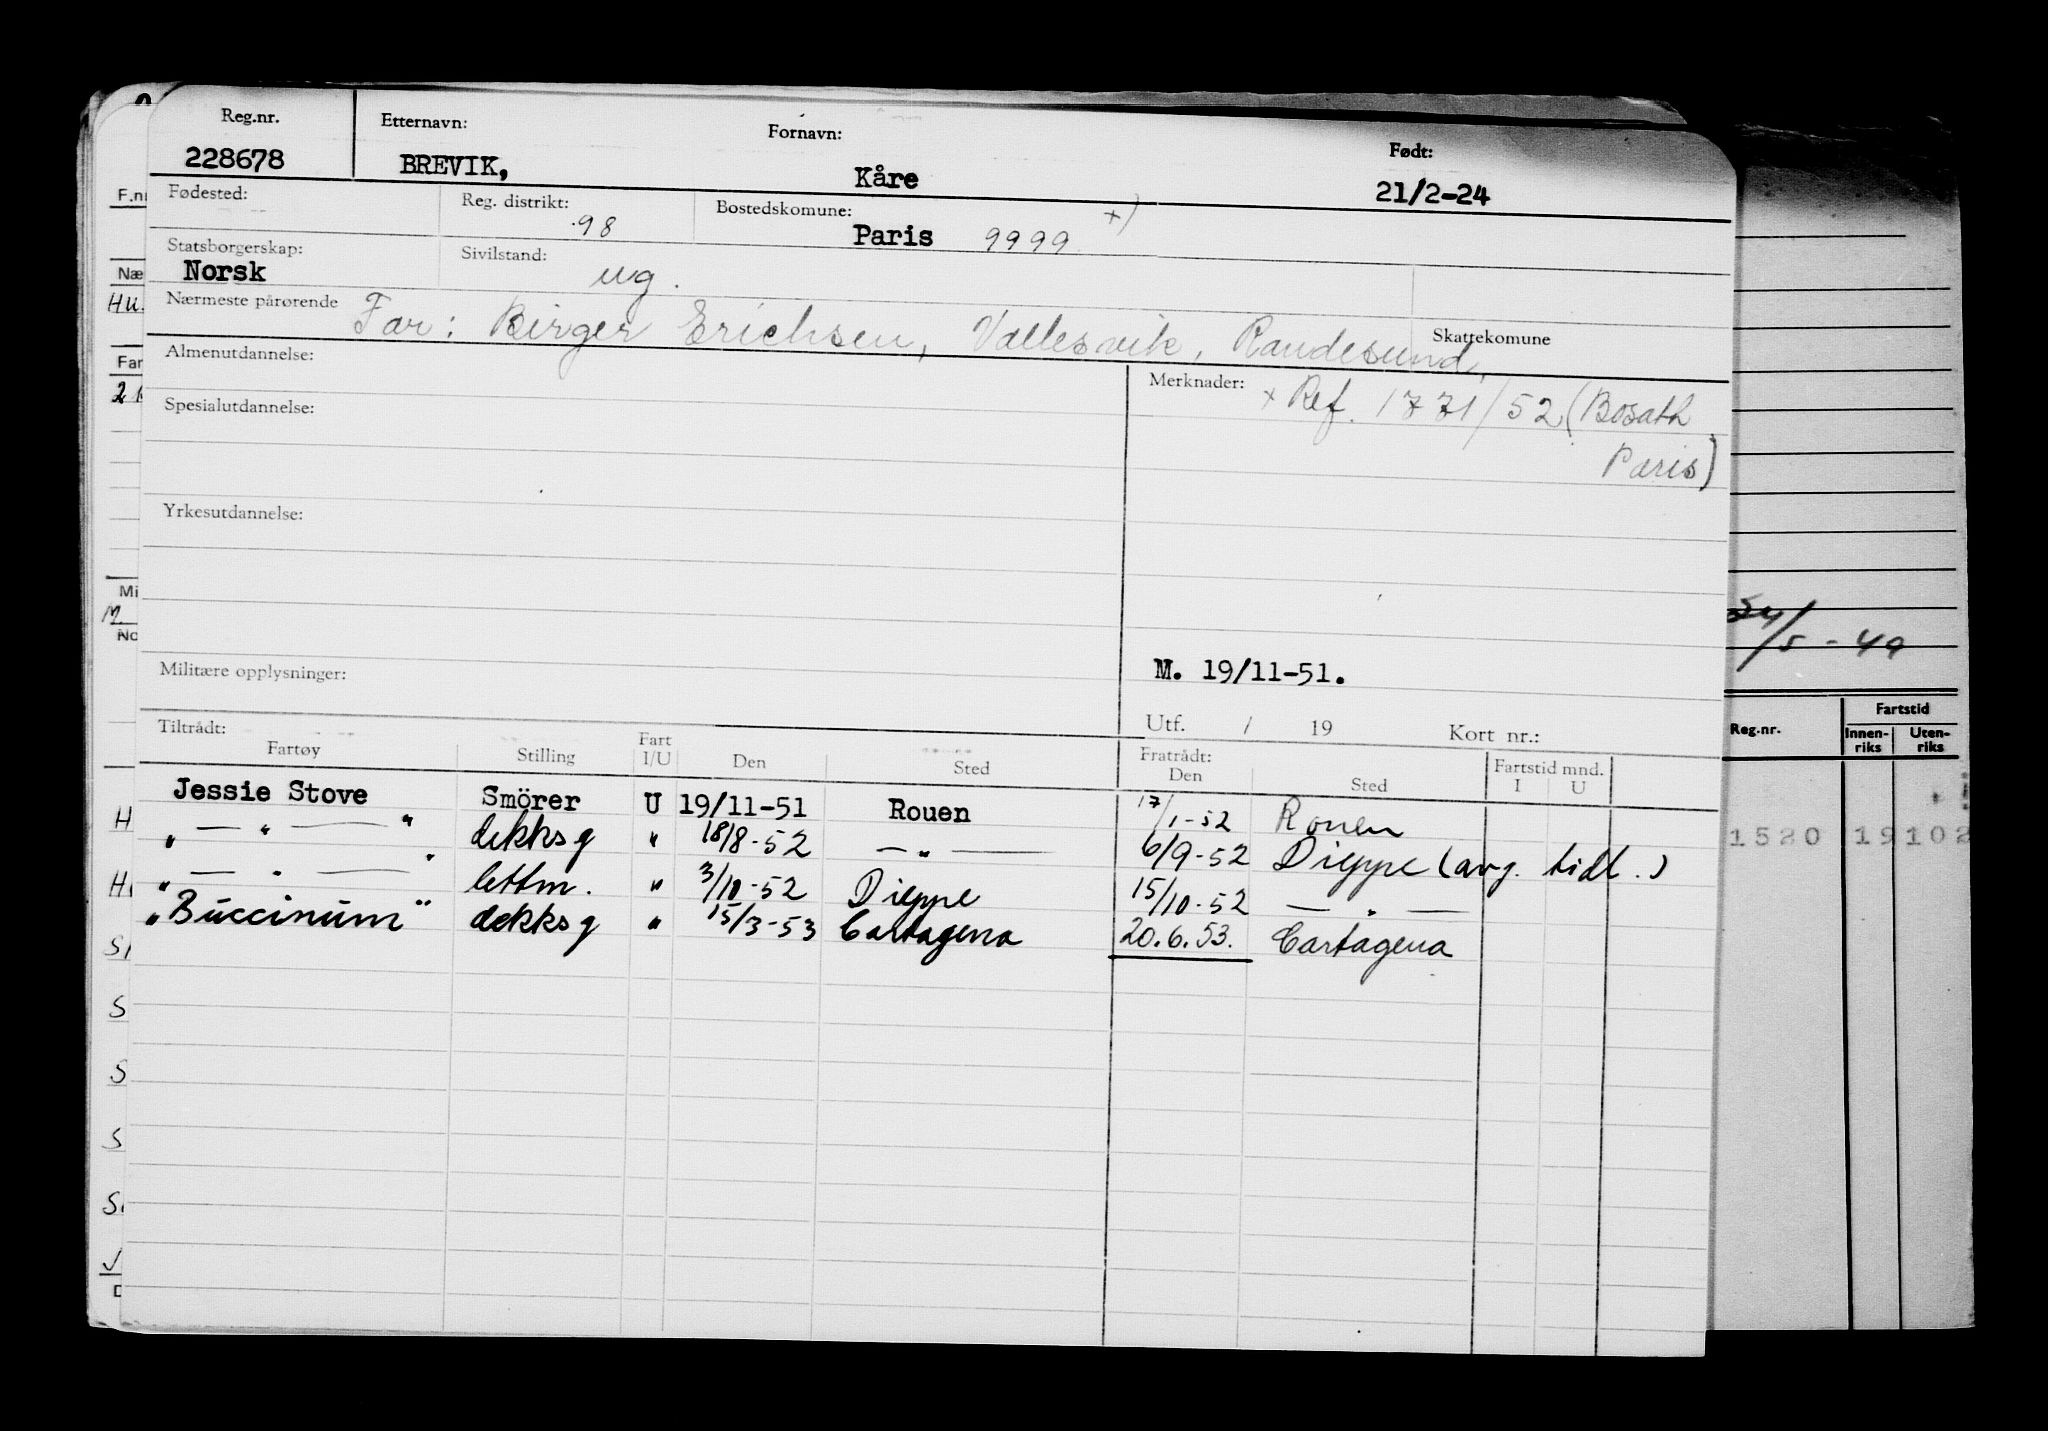 Reg.nr. Etternavn: Fornavn: Født:
228678 BREVIK, Kåre 21/2-24
Fødested: Reg. distrikt: 98 Bostedskomune: Paris 9999 +)
Statsborgerskap: Norsk Sivilstand: ug.
Nærmeste pårørende Far: Birger Erichsen, Vallesvik, Randesund, Skattekomune
Almenutdannelse: Merknader: + Ref. 1771/52 (Bosatt
Paris)
Spesialutdannelse:
Yrkesutdannelse:
Militære opplysninger: M. 19/11-51.
Tiltrådt: Utf. / 19 Kort nr.:
Fartøy Stilling Fart I/U Den Sted Fratrådt: Den Sted Fartstid mnd. I U
Jessie Stove Smörer U 19/11-51 Rouen 17/1-52 Rouen
" — " — " dekksg " 18/8-52 — " — 6/9-52 Dieppe (avg. tidl.)
" — " — " lettm. " 3/10-52 Dieppe 15/10-52 — " —
"Buccinum" dekksg " 15/3-53 Cartagena 20.6.53. Cartagena
F.nr
Næ
Hu.
Far
Mi
No
H
S
S
S
24/5-49
Reg.nr. Fartstid
Innen-riks Uten-riks
1520 19102